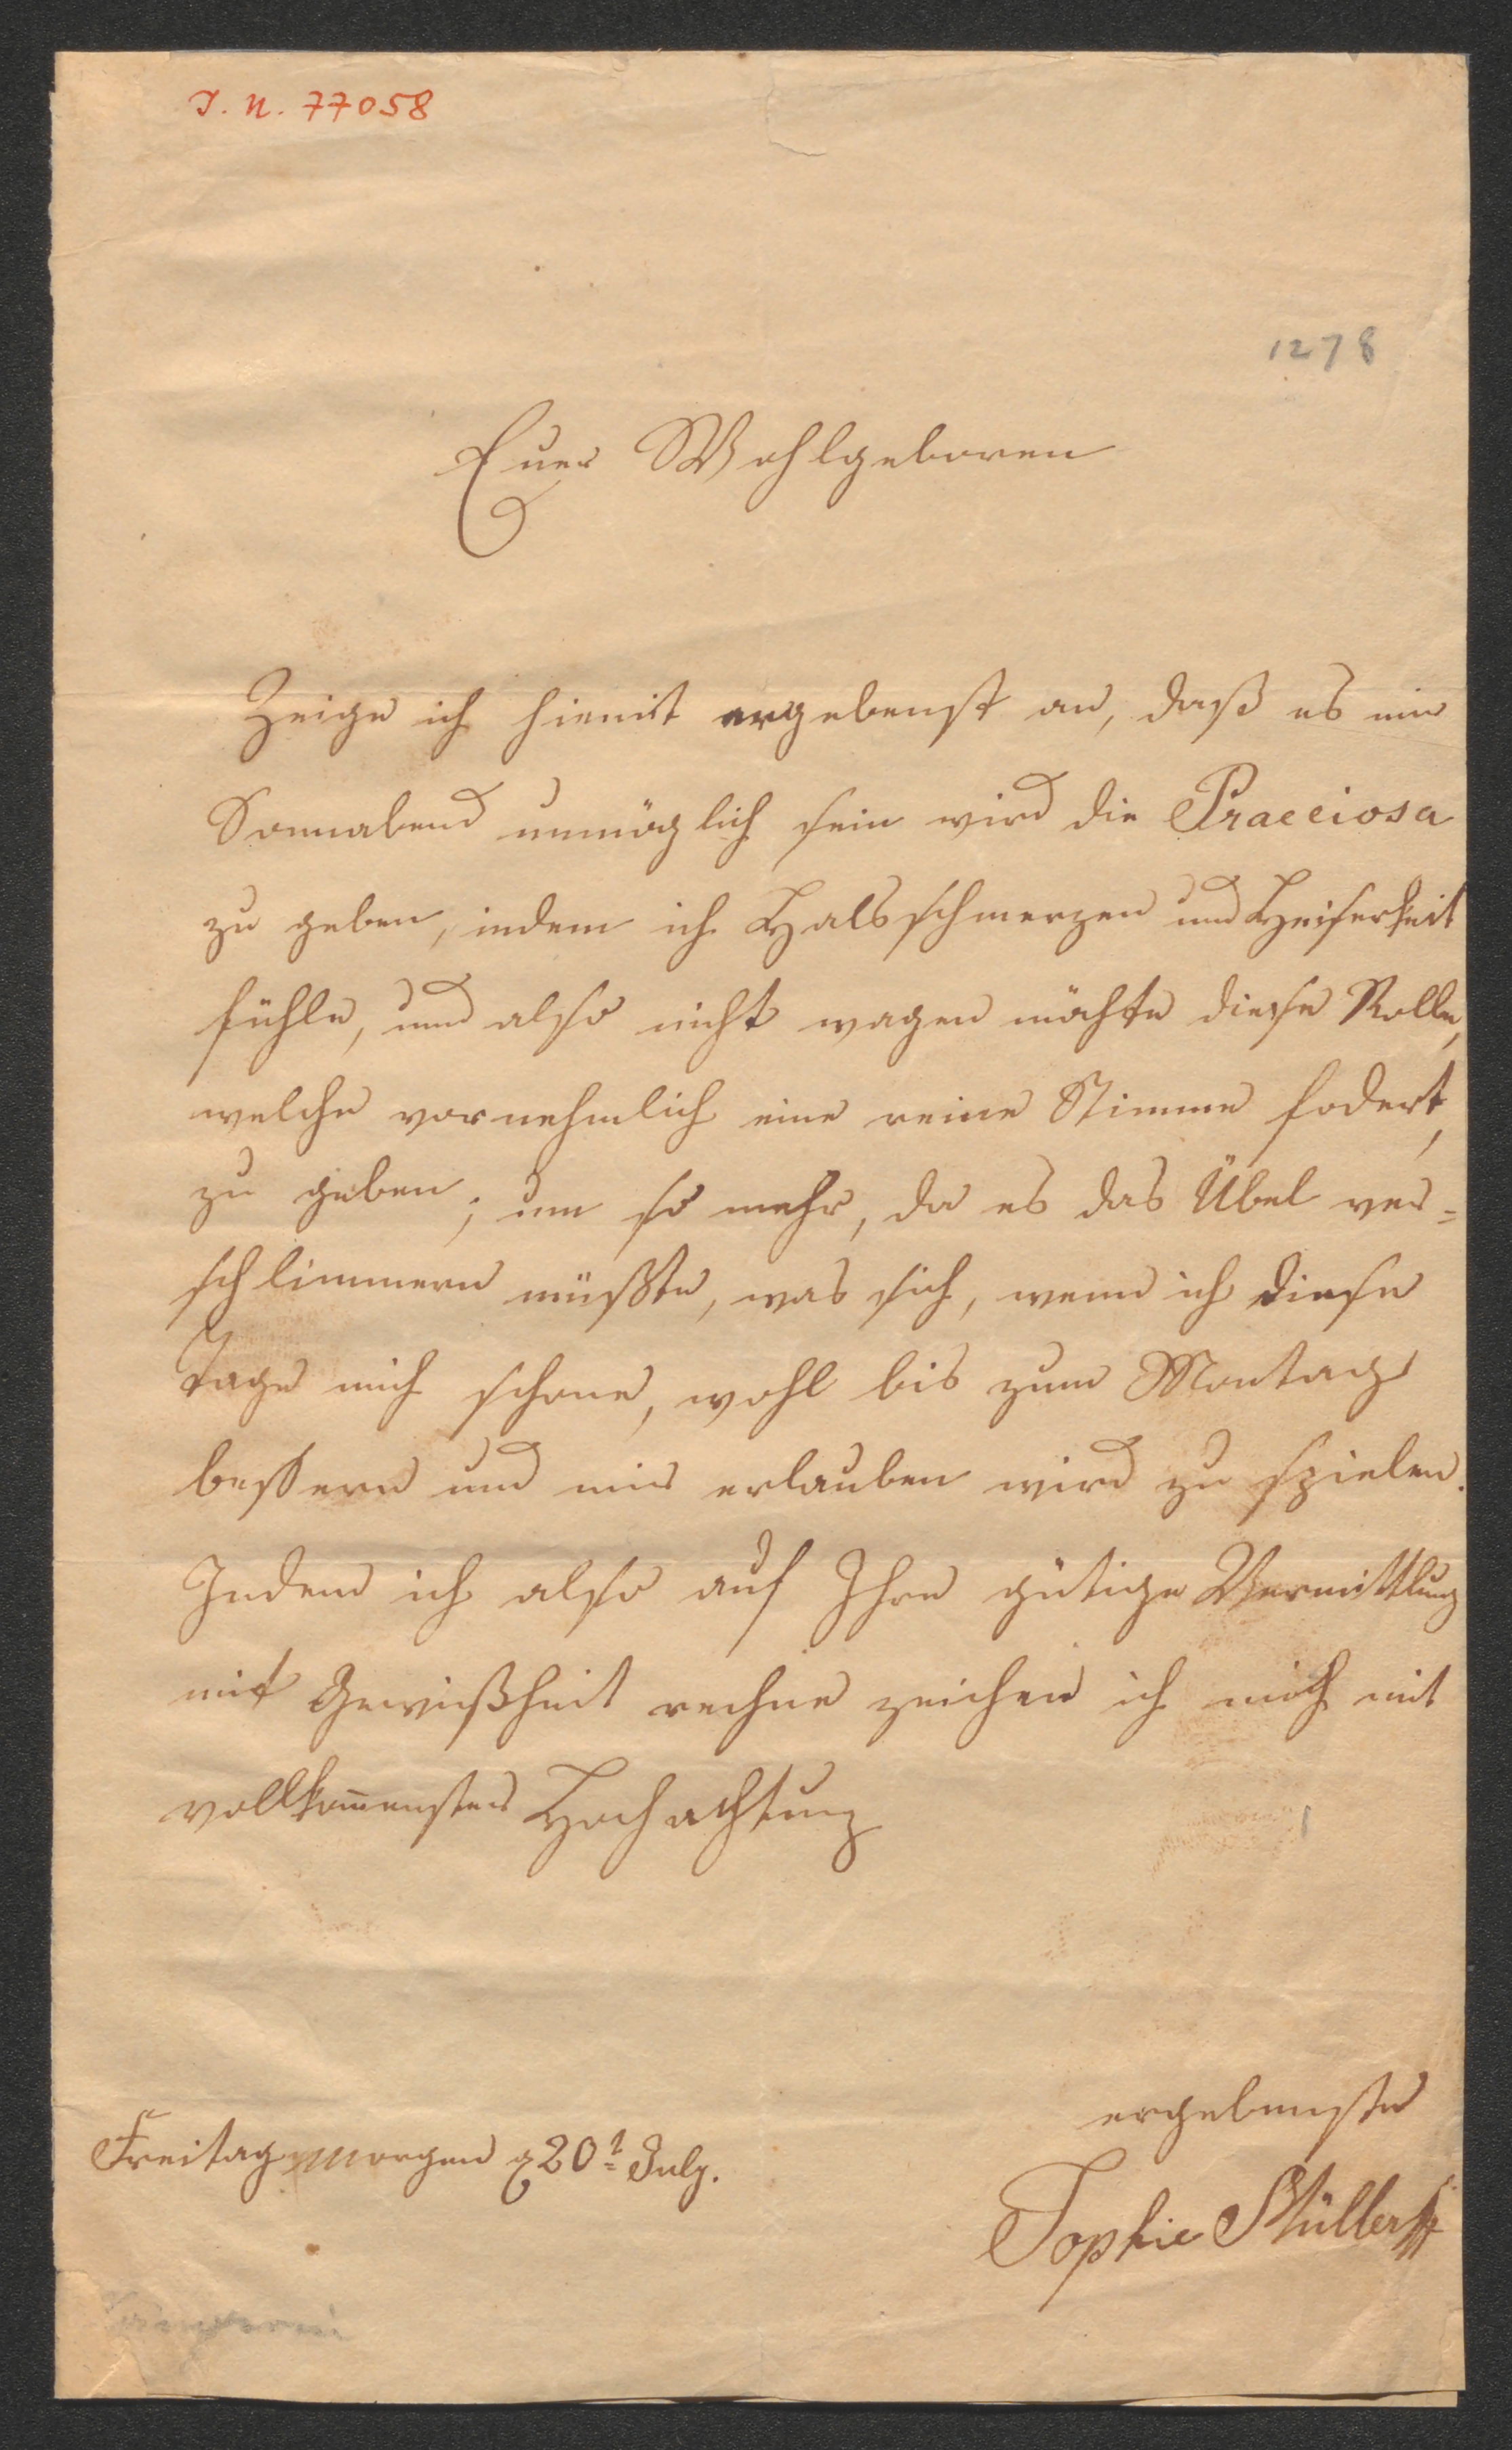 I. N. 77058
1278
Euer Wohlgeboren
Zeige ich hiemit ergebenst an, daß es mir
Sonnabend unmöglich sein wird die Praeciosa
zu geben, indem ich Halsschmerzen und Heiserkeit
fühle, und also nicht wagen möchte diese Rolle,
welche vornehmlich eine reine Stimme fodert,
zu geben; um so mehr, da es das Übel ver=
schlimmern müßte, was sich, wenn ich diese
Tage mich schone, wohl bis zum Montag
bessern und mir erlauben wird zu spielen.
Indem ich also auf Ihre gütige Vermittlung
mit Gewißheit rechne zeichne ich mich mit
vollkom̅enster Hochachtung
ergebenste
Freitag Morgen d 20t July.
Sophie Müller